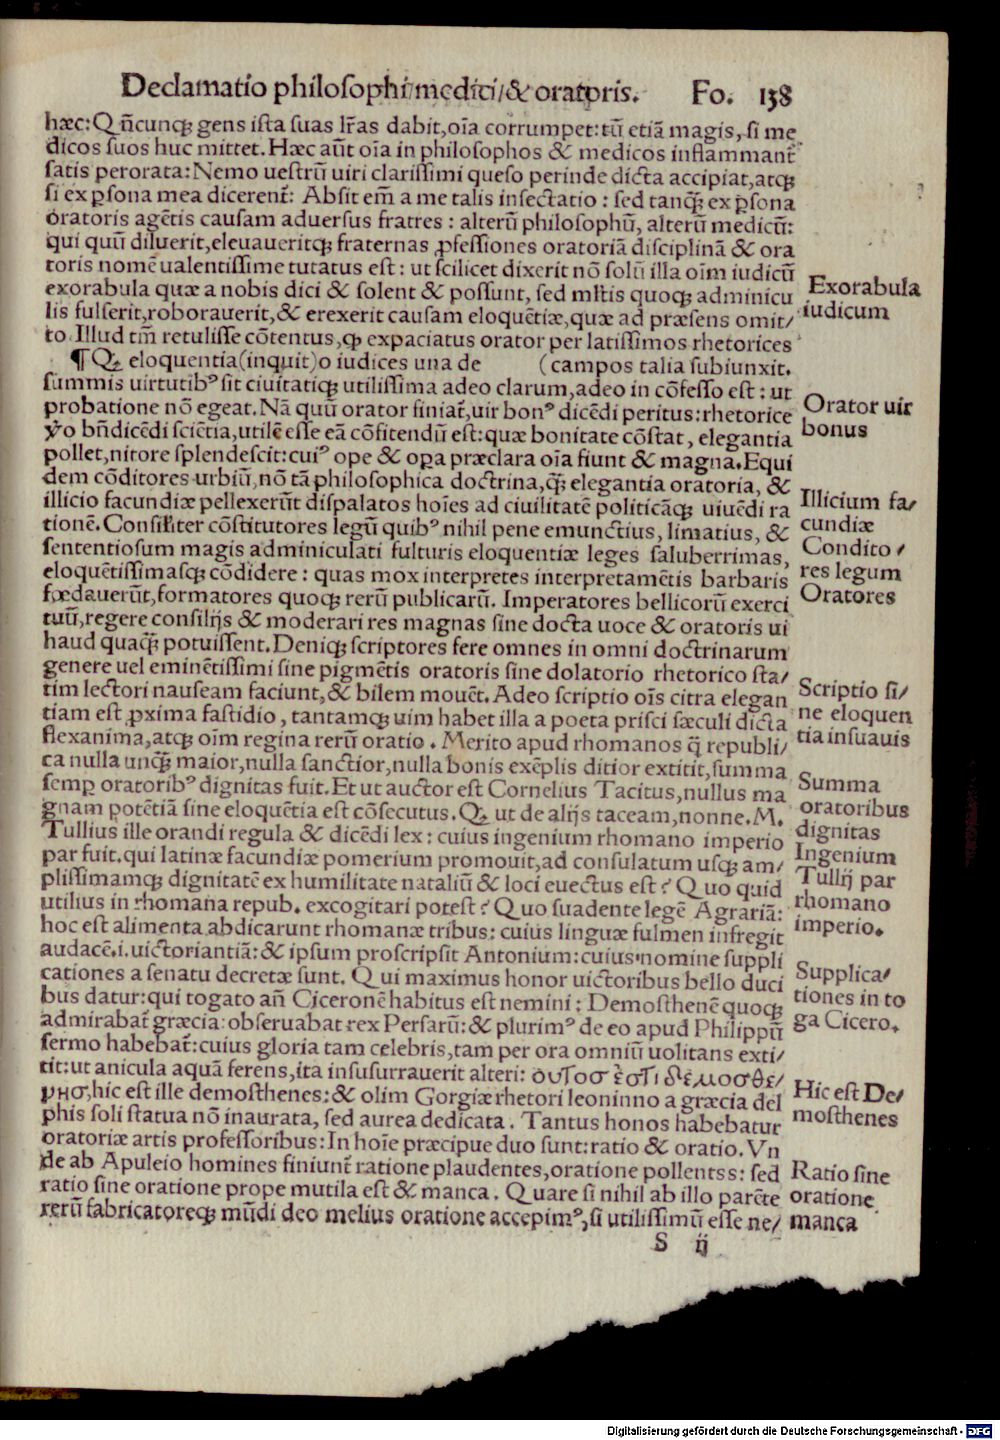 Declamatio philosophi/medici/& oratoris. Fo. 138
hæc: Qñcunqꝫ gens ista suas lr̃as dabit,oĩa corrumpet: tũ etiã magis, si me
dicos suos huc mittet. Hæc aũt oĩa in philosophos & medicos inflammant̃
satis perorata: Nemo uestrũ uiri clarissimi queso perinde dicta accipiat,atqꝫ
si ex ꝑsona mea dicerent̃: Absit em̃ a me talis insectatio: sed tanq̃ꝫ ex ꝑsona
oratoris agẽtis causam aduersus fratres: alterũ philosophũ, alterũ medicũ:
qui quũ diluerit,eleuaueritqꝫ fraternas ꝓfessiones oratoriã disciplinã & ora
toris nomẽ ualentissime tutatus est: ut scilicet dixerit nõ solũ illa oĩm iudicũ
exorabula quæ a nobis dici & solent & possunt, sed ml̃tis quoqꝫ adminicu
lis fulserit,roborauerit,& erexerit causam eloquẽtiæ,quæ ad præsens omit/
to. Illud tm̃ retulisse cõtentus,ꝙ expaciatus orator per latissimos rhetorices
¶ Qꝫ eloquentia(inquit)o iudices una de (campos talia subiunxit.
summis uirtutibꝰ sit ciuitatiqꝫ utilissima adeo clarum,adeo in cõfesso est: ut
probatione nõ egeat. Nã quũ orator finiat̃,uir bonꝰ dicẽdi peritus: rhetorice
ỽo bñdicẽdi sciẽtia,utilẽ esse eã cõfitendũ est: quæ bonitate cõstat, elegantia
pollet,nitore splendescit: cuiꝰ ope & oꝑa præclara oĩa fiunt & magna. Equi
dem cõditores urbiũ,nõ tã philosophica doctrina,q̃ꝫ elegantia oratoria, &
illicio facundiæ pellexerũt dispalatos hoĩes ad ciuilitatẽ politicãqꝫ uiuẽdi ra
tionẽ. Consil̃iter cõstitutores legũ quibꝰ nihil pene emunctius, limatius, &
sententiosum magis adminiculati fulturis eloquentiæ leges saluberrimas,
eloquẽtissimasqꝫ cõdidere: quas mox interpretes interpretamẽtis barbaris
fœdauerũt,formatores quoqꝫ rerũ publicarũ. Imperatores bellicorũ exerci
tuũ,regere consilijs & moderari res magnas sine docta uoce & oratoris ui
haud quaq̃ꝫ potuissent. Deniqꝫ scriptores fere omnes in omni doctrinarum
genere uel eminẽtissimi sine pigmẽtis oratoris sine dolatorio rhetorico sta/
tim lectori nauseam faciunt,& bilem mouẽt. Adeo scriptio oĩs citra elegan
tiam est ꝓxima fastidio, tantamqꝫ uim habet illa a poeta prisci sæculi dicta
flexanima,atqꝫ oĩm regina rerũ oratio. Merito apud rhomanos q̃ republi/
ca nulla unq̃ꝫ maior,nulla sanctior,nulla bonis exẽplis ditior extitit,summa
semꝑ oratoribꝰ dignitas fuit. Et ut auctor est Cornelius Tacitus,nullus ma
gnam potẽtiã sine eloquẽtia est cõsecutus. Qꝫ ut de alijs taceam,nonne. M.
Tullius ille orandi regula & dicẽdi lex: cuius ingenium rhomano imperio
par fuit. qui latinæ facundiæ pomerium promouit,ad consulatum usqꝫ am/
plissimamqꝫ dignitatẽ ex humilitate nataliũ & loci euectus est? Quo quid
utilius in rhomana repub. excogitari potest? Quo suadente legẽ Agrariã:
hoc est alimenta abdicarunt rhomanæ tribus: cuius linguæ fulmen infregit
audacẽ.i.uictoriantiã: & ipsum proscripsit Antonium: cuius nomine suppli
cationes a senatu decretæ sunt. Qui maximus honor uictoribus bello duci
bus datur: qui togato añ Ciceronẽ habitus est nemini: Demosthenẽ quoqꝫ
admirabat̃ græcia: obseruabat rex Persarũ: & plurimꝰ de eo apud Philippũ
sermo habebat̃: cuius gloria tam celebris,tam per ora omniũ uolitans exti/
tit: ut anicula aquã ferens,ita insusurrauerit alteri: ουτοσ ἐστι δεμοσθε/
ρησ,hic est ille demosthenes: & olim Gorgiæ rhetori leoninno a græcia del
phis soli statua nõ inaurata, sed aurea dedicata. Tantus honos habebatur
oratoriæ artis professoribus: In hoĩe præcipue duo sunt: ratio & oratio. Vn
de ab Apuleio homines finiunt̃ ratione plaudentes,oratione pollentss: sed
ratio sine oratione prope mutila est & manca. Quare si nihil ab illo parẽte
rerũ fabricatoreqꝫ mũdi deo melius oratione accepimꝰ,si utilissimũ esse ne/
S ij
Exorabula
iudicum
Orator uir
bonus
Illicium fa/
cundiæ
Condito/
res legum
Oratores
Scriptio si/
ne eloquen
tia insuauis
Summa
oratoribus
dignitas
Ingenium
Tullij par
rhomano
imperio.
Supplica/
tiones in to
ga Cicero.
Hic est De/
mosthenes
Ratio sine
oratione
manca
Digitalisierung gefördert durch die Deutsche Forschungsgemeinschaft - DFG